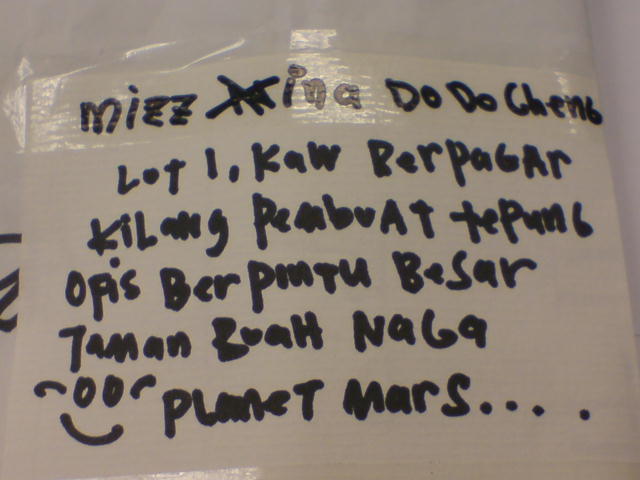 Mizz Nina DoDoCheng
Lot 1, Kaw BerpaGAr
KiLang PembuAT tepunG
Opis Berpintu Besar
Taman BuaH NaGa
PLaneT Mars....